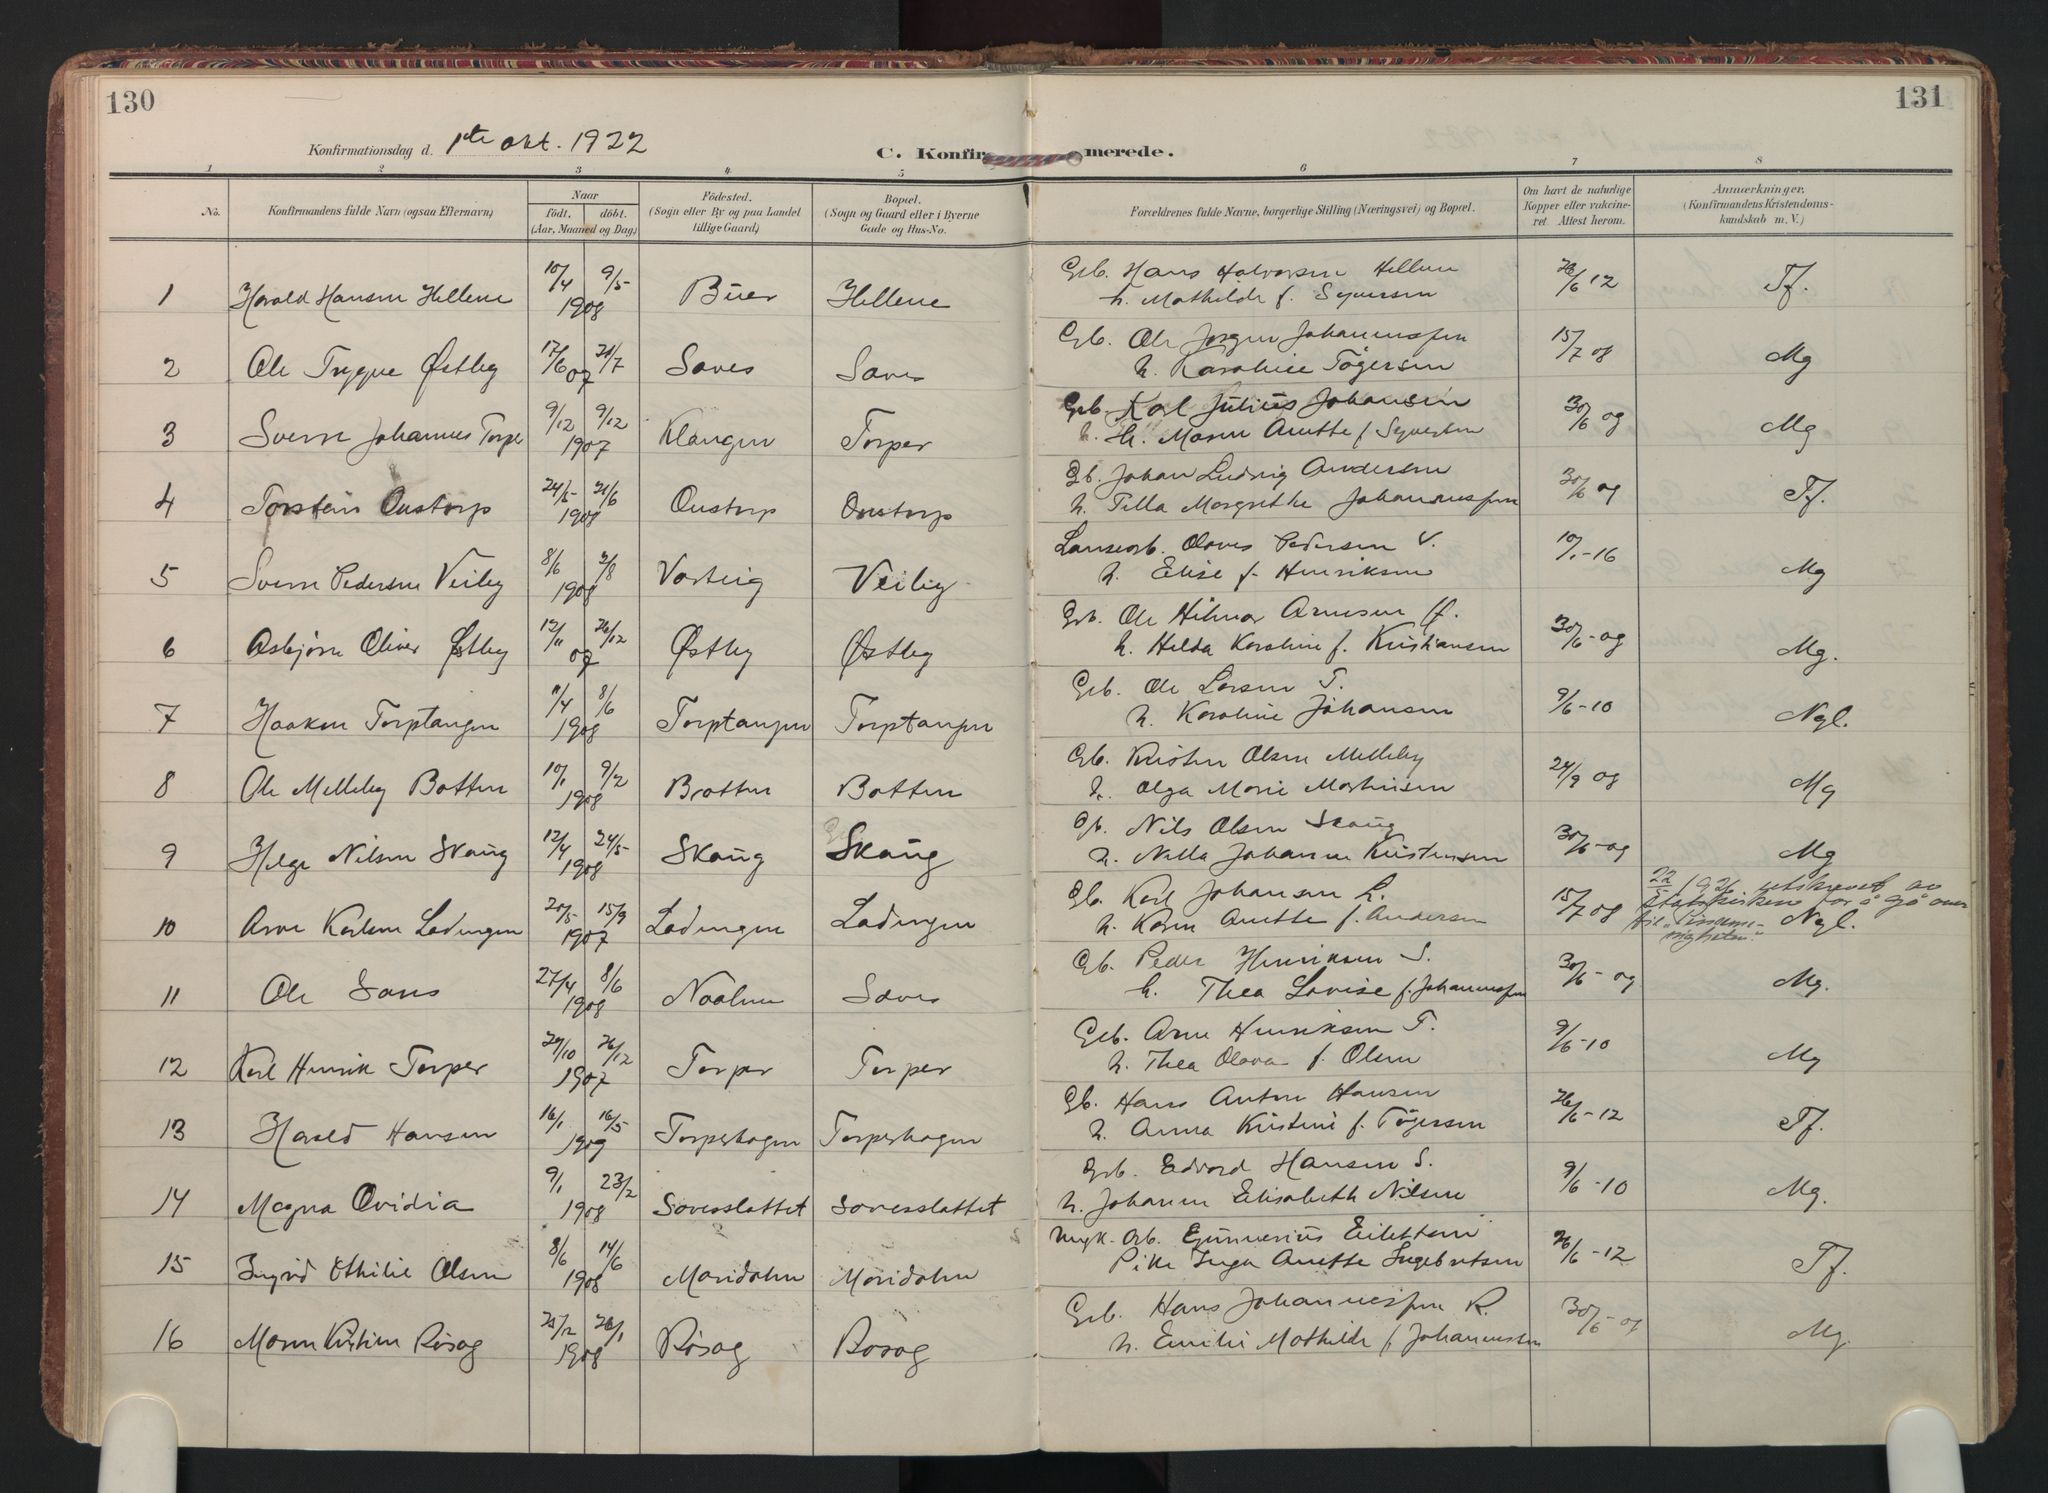 130
131
Konfirmationsdag d. 1ste okt. 1922
C. Konfir merede.
1 2 3 4 5 6 7 8
No. Konfirmandens fulde Navn (ogsaa Efternavn) Naar født. døbt. (Aar, Maaned og Dag) Födested. (Sogn eller By og paa Landet tillige Gaard) Bopæl. (Sogn og Gaard eller i Byerne Gade og Hus-No. Forældrenes fulde Navne, borgerlige Stilling (Næringsvei) og Bopæl. Om havt de naturlige Kopper eller vakcineret. Attest herom. Anmærkninger. (Konfirmandens Kristendomskundskab m. V.)
Gb. Hans Halvorsen Hellene
1 Harald Hansen Hellene 10/4 9/5 1908 Buer Hellene h. Mathilde f. Syversen 26/6 12 Tf.
Gb. Ole Jørgen Johannessen
2 Ole Trygve Østby 17/6 21/7 07 Soves Soves h. Karoline Tögersen 15/7 08 Mg
Gb. Karl Julius Johansen
3 Sverre Johannes Torper 9/12 9/12 1907 Klangen Torper h. Maren Anette f. Syvertsen 30/6 09 Mg
Gb. Johan Ludvig Andersen
4 Torstein Onstorp 24/5 21/6 1908 Onstorp Onstorp h. Tilla Margrethe Johannessen 30/6 09 Tf.
Olaves Pedersen V.
5 Sverre Pedersen Veiby 8/6 2/8 1908 Varteig Veiby h. Elise f. Henriksen 10/1-16 Mg
Gb. Ole Hilmar Arnesen Ø.
6 Asbjørn Oliver Østby 12/11 26/12 07 Østby Østby h. Helda Karoline f. Kristiansen 30/6-09 Mg.
Gb. Ole Larsen T.
7 Haakon Torptangen 11/4 8/6 1908 Torptangen Torptangen h. Karoline Johansen 9/6-10 Ngl.
Gb. Kristen Olsen Melleby
8 Ole Melleby Botten 10/1 9/2 1908 Brotten Botten h. Olga Marie Martinsen 24/9 09 Mg
Gb. Nils Olsen Skaug
9 Helge Nilsen Skaug 12/4 24/5 1908 Skaug Skaug h. Nella Johanne Kristensen 30/6-09 Mg
Gb. Karl Johansen L. 22/5 1926 utskrevet av
10 Arne Karlsen Ladengen 20/5 15/9 1907 Ladengen Ladengen h. Karen Anette f. Andersen 15/7 08 statskirken for å gå over til "Pinsemenigheten". Ngl.
Gb. Peder Henriksen S.
11 Ole Soves 27/4 8/6 1908 Noalen Soves h. Thea Lovise f. Johannessen 30/6-09 Mg.
Gb. Arne Henriksen T.
12 Karl Henrik Torper 29/10 26/12 1907 Torper Torper h. Thea Olava f. Olsen 9/6-10 Mg
Gb. Hans Anton Hansen
13 Harald Hansen 16/1 16/5 1909 Torperhagen Torperhagen h. Anna Kristine f. Tögersen 26/6-12 Tf.
Gb. Edvard Hansen S.
14 Magna Ovidia 9/1 23/2 1908 Sovesslattet Sovesslattet h. Johanne Elisabeth Nilsen 9/6-10 Mg.
Ungk. Arb. Gunnerius Eilertsen
15 Ingrid Othilie Olsen 8/6 14/6 1908 Moridalen Moridalen Pike Inga Anette Ingebretsen 26/6-12 Tf.
Gb. Hans Johannessen R.
16 Maren Kristine Rösog 25/12 26/1 1908 Rösog Rosog h. Emilie Mathilde f. Johannessen 30/6-09 Mg.